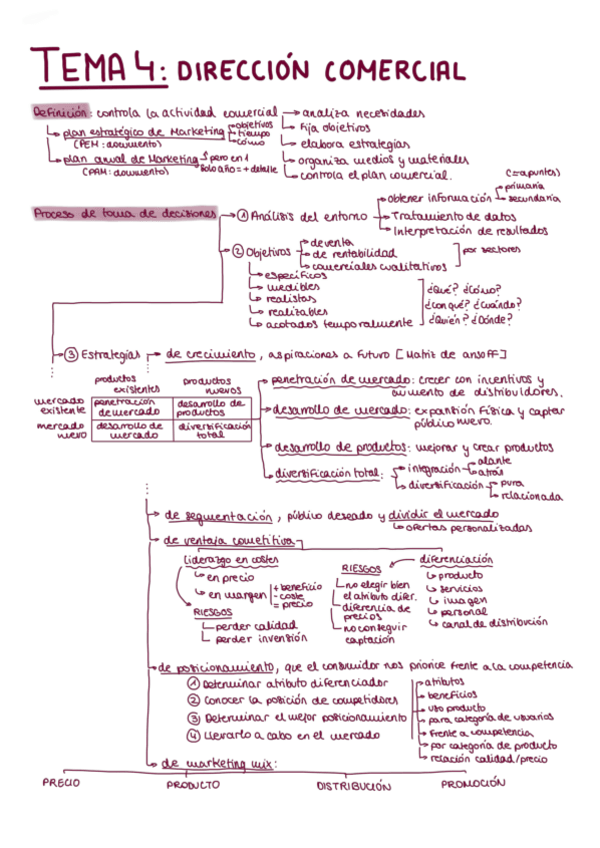 TEMA 4: DIRECCIÓN COMERCIAL
Definición: controla la actividad comercial
analiza necesidades
fija objetivos
elabora estrategias
organiza medios y materiales
controla el plan comercial.
plan estratégico de Marketing
(PEM: documento)
objetivos
tiempo
cómo
plan anual de Marketing
(PAM: documento)
pero en 1
solo año = + detalle
Proceso de toma de decisiones
① Análisis del entorno
obtener información
(= apuntes)
primaria
secundaria
Tratamiento de datos
Interpretación de resultados
② Objetivos
de venta
de rentabilidad
comerciales cualitativos
por sectores
específicos
medibles
realistas
realizables
acotados temporalmente
¿Qué? ¿Cómo?
¿con qué? ¿cuándo?
¿Quién? ¿Dónde?
③ Estrategias
de crecimiento, aspiraciones a futuro [Matriz de ansoff]
productos existentes
productos nuevos
mercado existente
penetración de mercado
desarollo de productos
mercado nuevo
desarollo de mercado
diversificación total
penetración de mercado: crecer con incentivos y
aumento de distribuidores.
desarrollo de mercado: expantión física y captar
público nuevo.
desarrollo de productos: mejorar y crear productos
diversificación total:
integración
alante
atrás
diversificación
pura
relacionada
de segmentación, público deseado y dividir el mercado
ofertas personalizadas
de ventaja competitiva
liderazgo en costes
en precio
en margen
+ beneficio
- coste
= precio
RIESGOS
perder calidad
perder inversión
diferenciación
producto
servicios
imagen
personal
canal de distribución
RIESGOS
no elegir bien
el atributo difer.
diferencia de
precios
no conseguir
captación
de posicionamiento, que el consumidor nos priorice frente a la competencia
① Determinar atributo diferenciador
② Conocer la posición de competidores
③ Determinar el mejor posicionamiento
④ Llevarlo a cabo en el mercado
atributos
beneficios
uso producto
para categoría de usuarios
frente a competencia
por categoría de producto
relación calidad/precio
de marketing mix:
PRECIO
PRODUCTO
DISTRIBUCIÓN
PROMOCIÓN